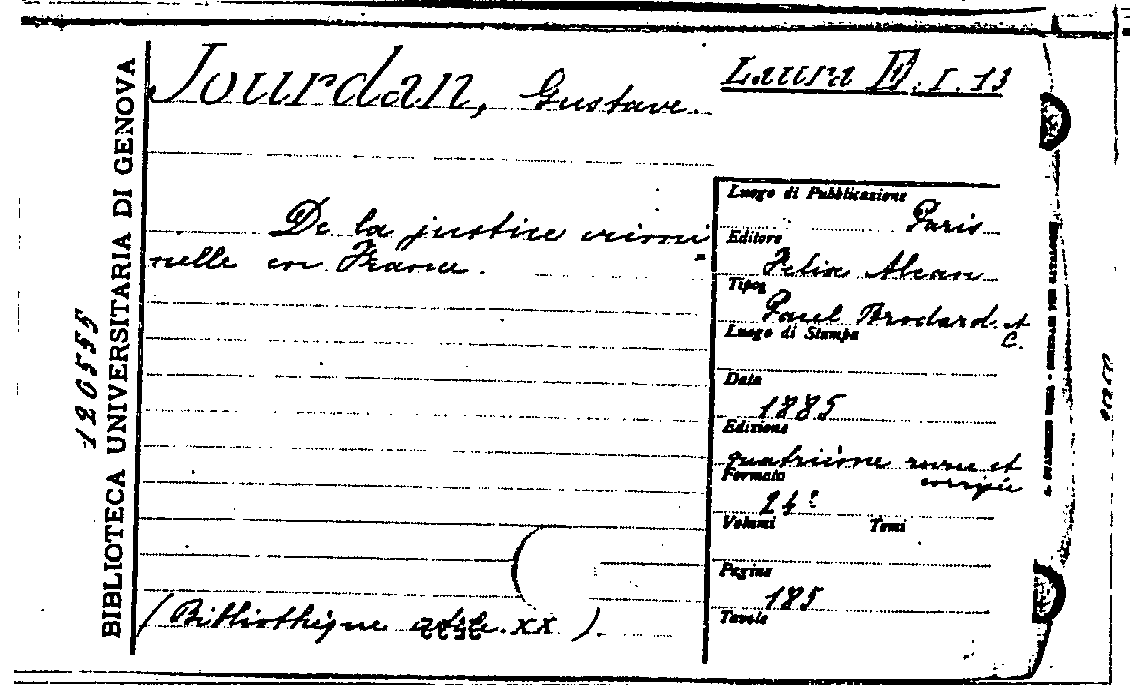 Jourdan, Gustave.
Laura E.I.13
De la justice crimi-
nelle en France.
(Bibliothèque utile. XX).
Luogo di Pubblicazione
Paris
Editore
Felix Alcan
Tipog
Paul Brodard. et
C.
Luogo di Stampa
Data
1885
Edizione
quatrième revue et
corrigée
Formato
24º
Volumi Tomi
Pagine
185
Tavole
BIBLIOTECA UNIVERSITARIA DI GENOVA
120555